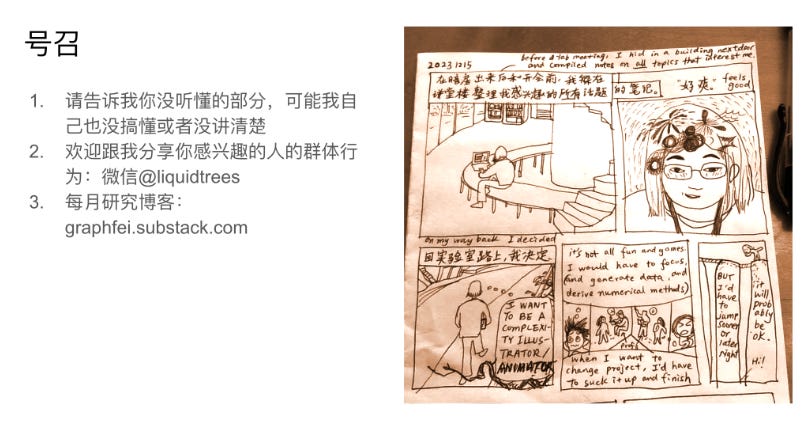 号召
1. 请告诉我你没听懂的部分，可能我自
己也没搞懂或者没讲清楚
2. 欢迎跟我分享你感兴趣的人的群体行
为：微信@liquidtrees
3. 每月研究博客：
graphfei.substack.com
20231215
before a lab meeting, I hid in a building nextdoor
and compiled notes on all topics that interest me.
整理我感兴趣的所有话题
的笔记。
"好爽。" feels
good
On my way back I decided
回实验室路上，我决定
I WANT
TO BE A
COMPLEXI-
TY ILLUS-
TRATOR/
ANIMATOR
it's not all fun and games.
I would have to focus,
(and generate data, and
derive numerical methods)
Profit
when I want to
change project, I'd have
to suck it up and finish
BUT
I'd
have
to
jump
sooner
or
later
right
it
will
prob
ably
be
ok.
Hi!